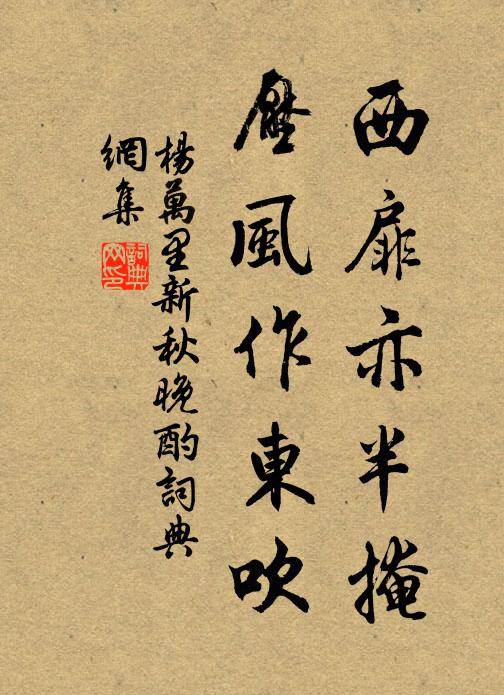 西扉亦半掩
壓風作東吹
楊萬里新秋晚酌詞典
網集
詞典
网印